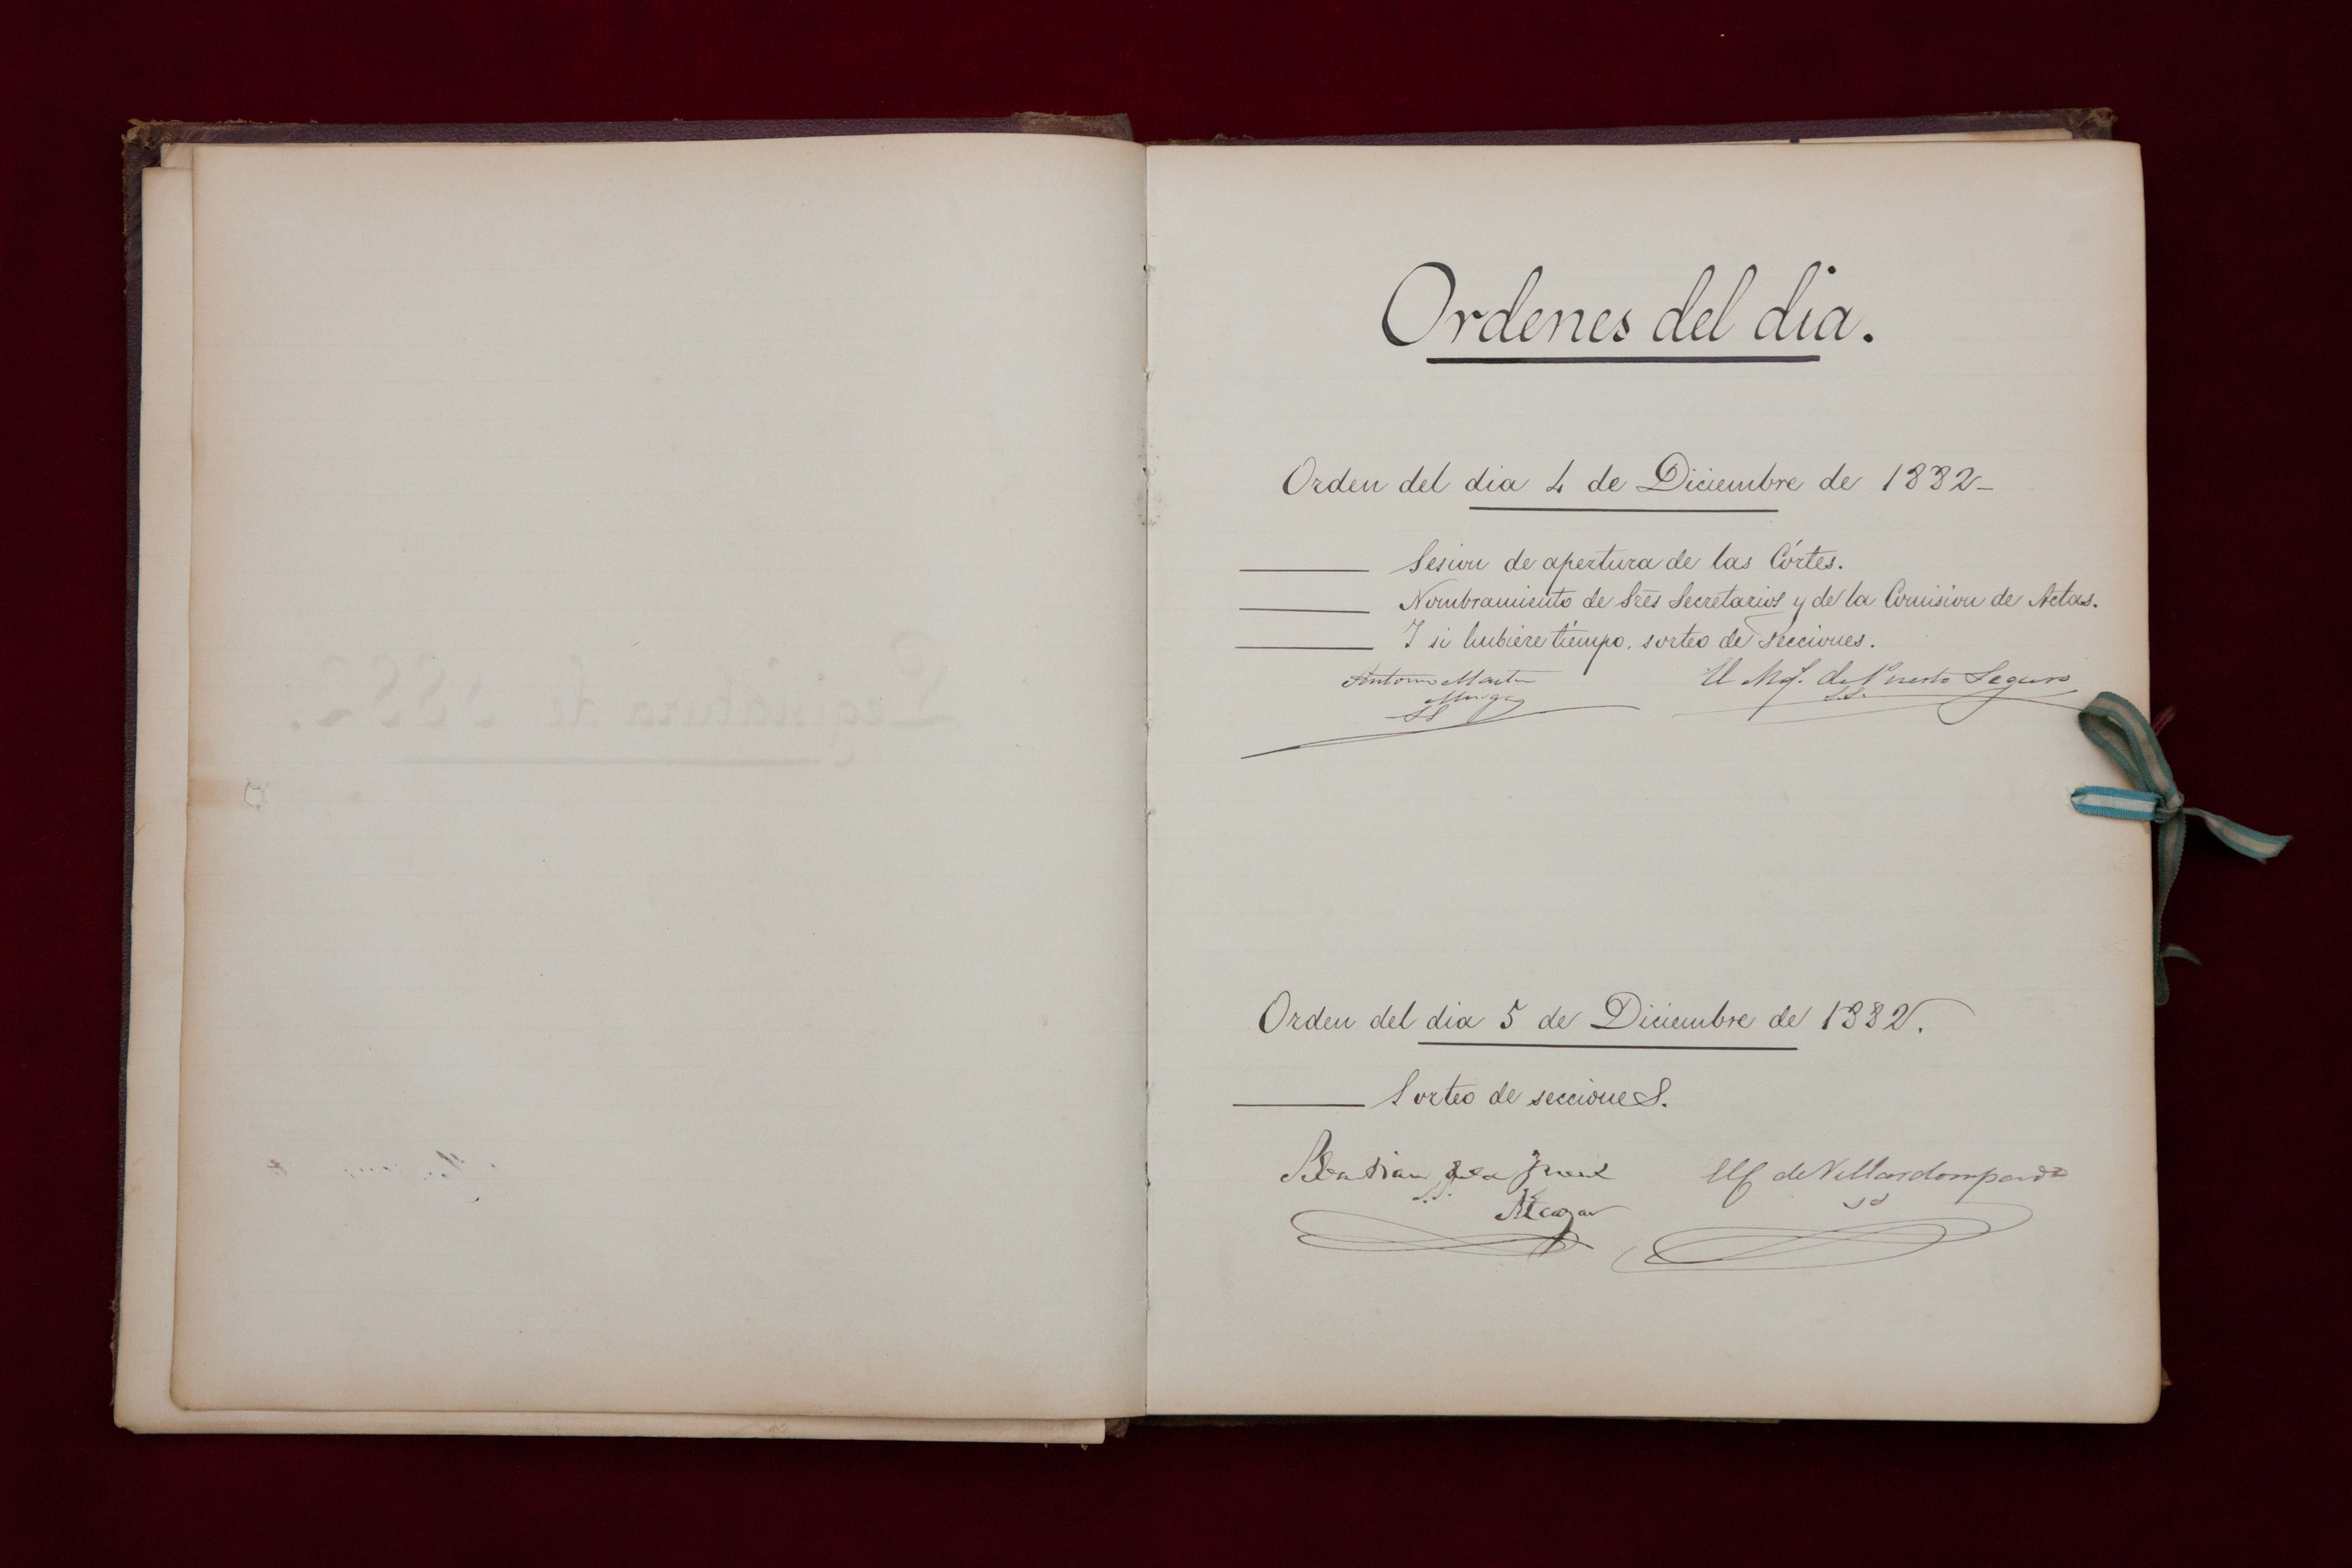 Legislatura de 1882.
Ordenes del dia.
Orden del dia 4 de Diciembre de 1882-
Sesion de apertura de las Córtes.
Nombramiento de Sres Secretarios y de la Comision de Actas.
Y si hubiere tiempo, sorteo de secciones.
Antonio Martin
El Mqs. de Puerto Seguro
Murga
SS
S.S.
Orden del dia 5 de Diciembre de 1882.
Sorteo de secciones.
de la Fuente
de Villardompardo
Alcazar